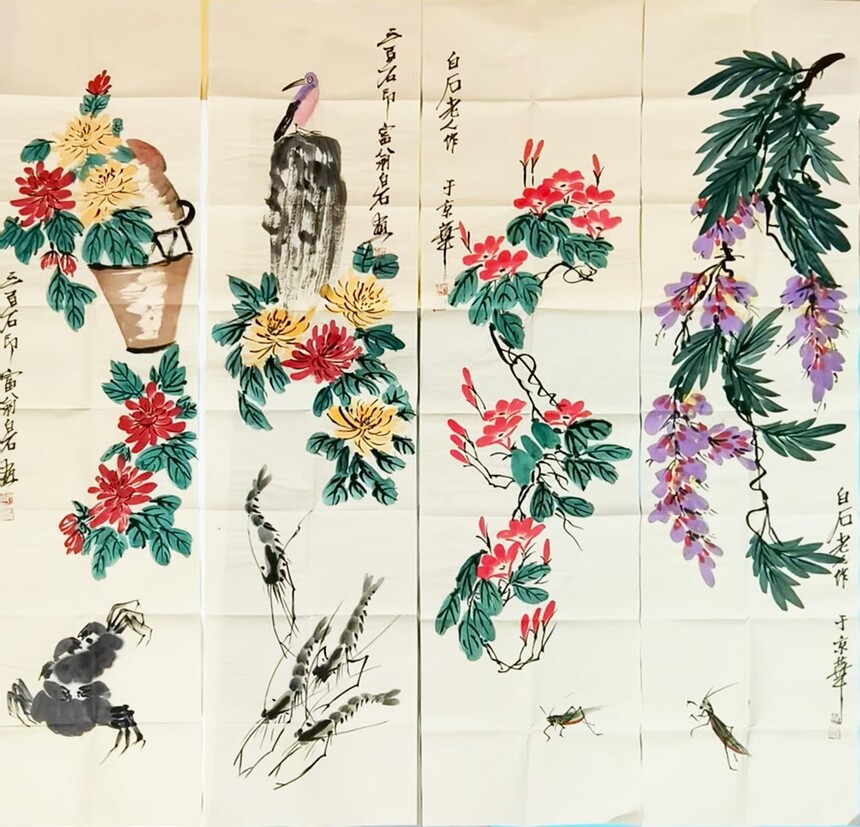 三百石印富翁白石
三百石印富翁白石
白石老人作
于京華
白石老人作
于京華